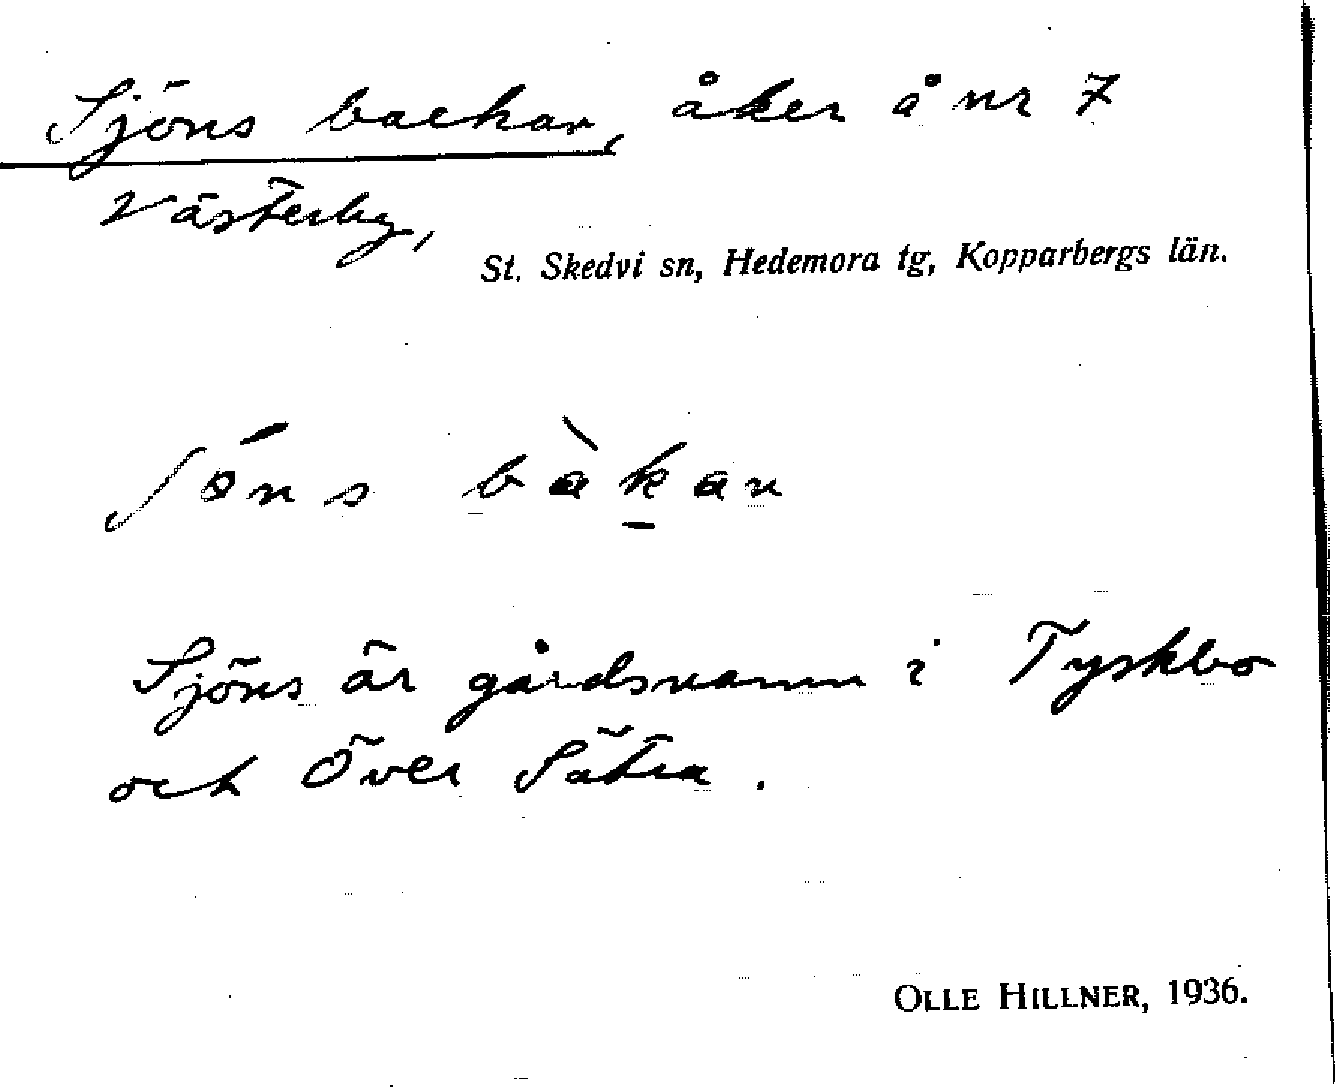 Sjöns backar, åker å nr 7
Västerby,
St. Skedvi sn, Hedemora tg, Kopparbergs län.
ʃǿns bàk̲an
Sjöns är gårdsnamn i Tyskbo
och Över Sätra.
OLLE HILLNER, 1936.